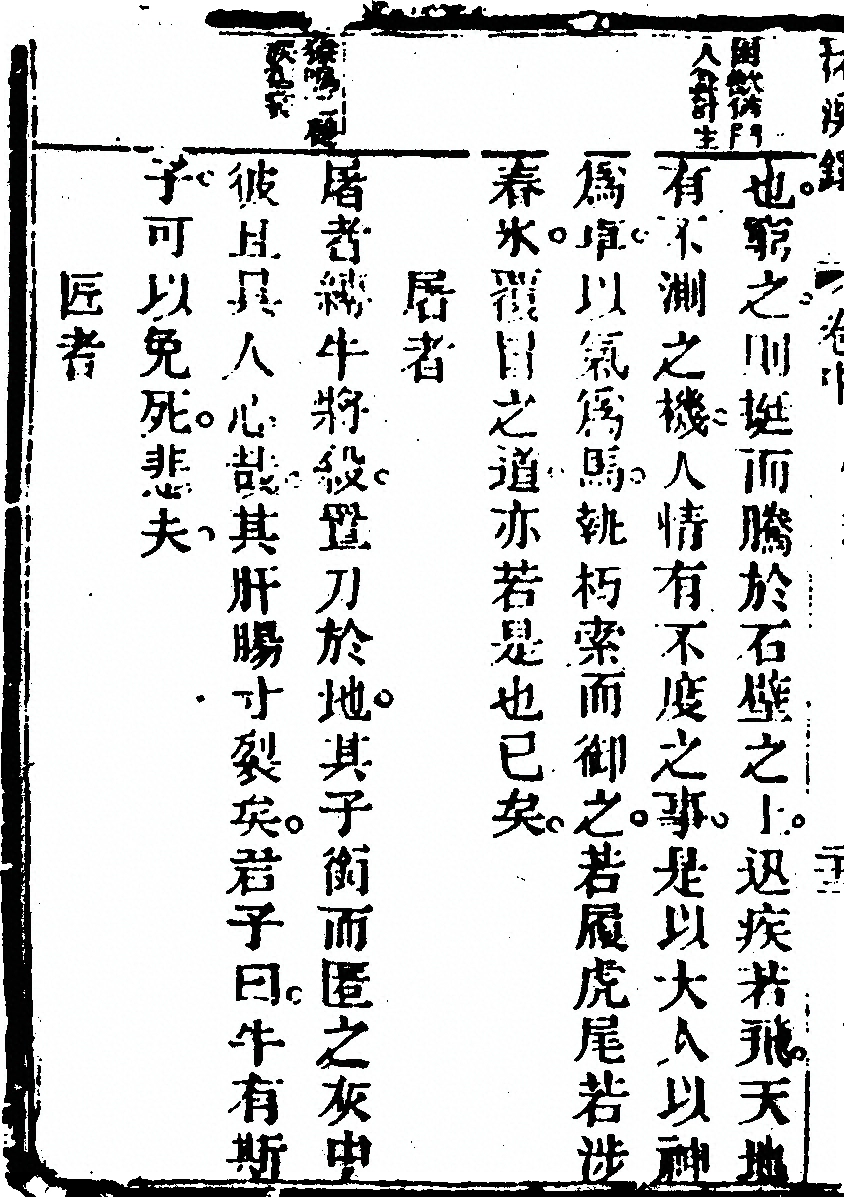 也窮之則挺而騰於石壁之上迅疾若飛天地
有不測之機人情有不度之事是以大人以神
爲車以氣爲馬執朽索而御之若履虎尾若涉
春氷覆冒之道亦若是也已矣
屠者
屠者縛牛將殺置刀於地其子銜而匿之灰中
彼且具人心哉其肝腸寸裂矣君子曰牛有斯
子可以免死悲夫
匠者